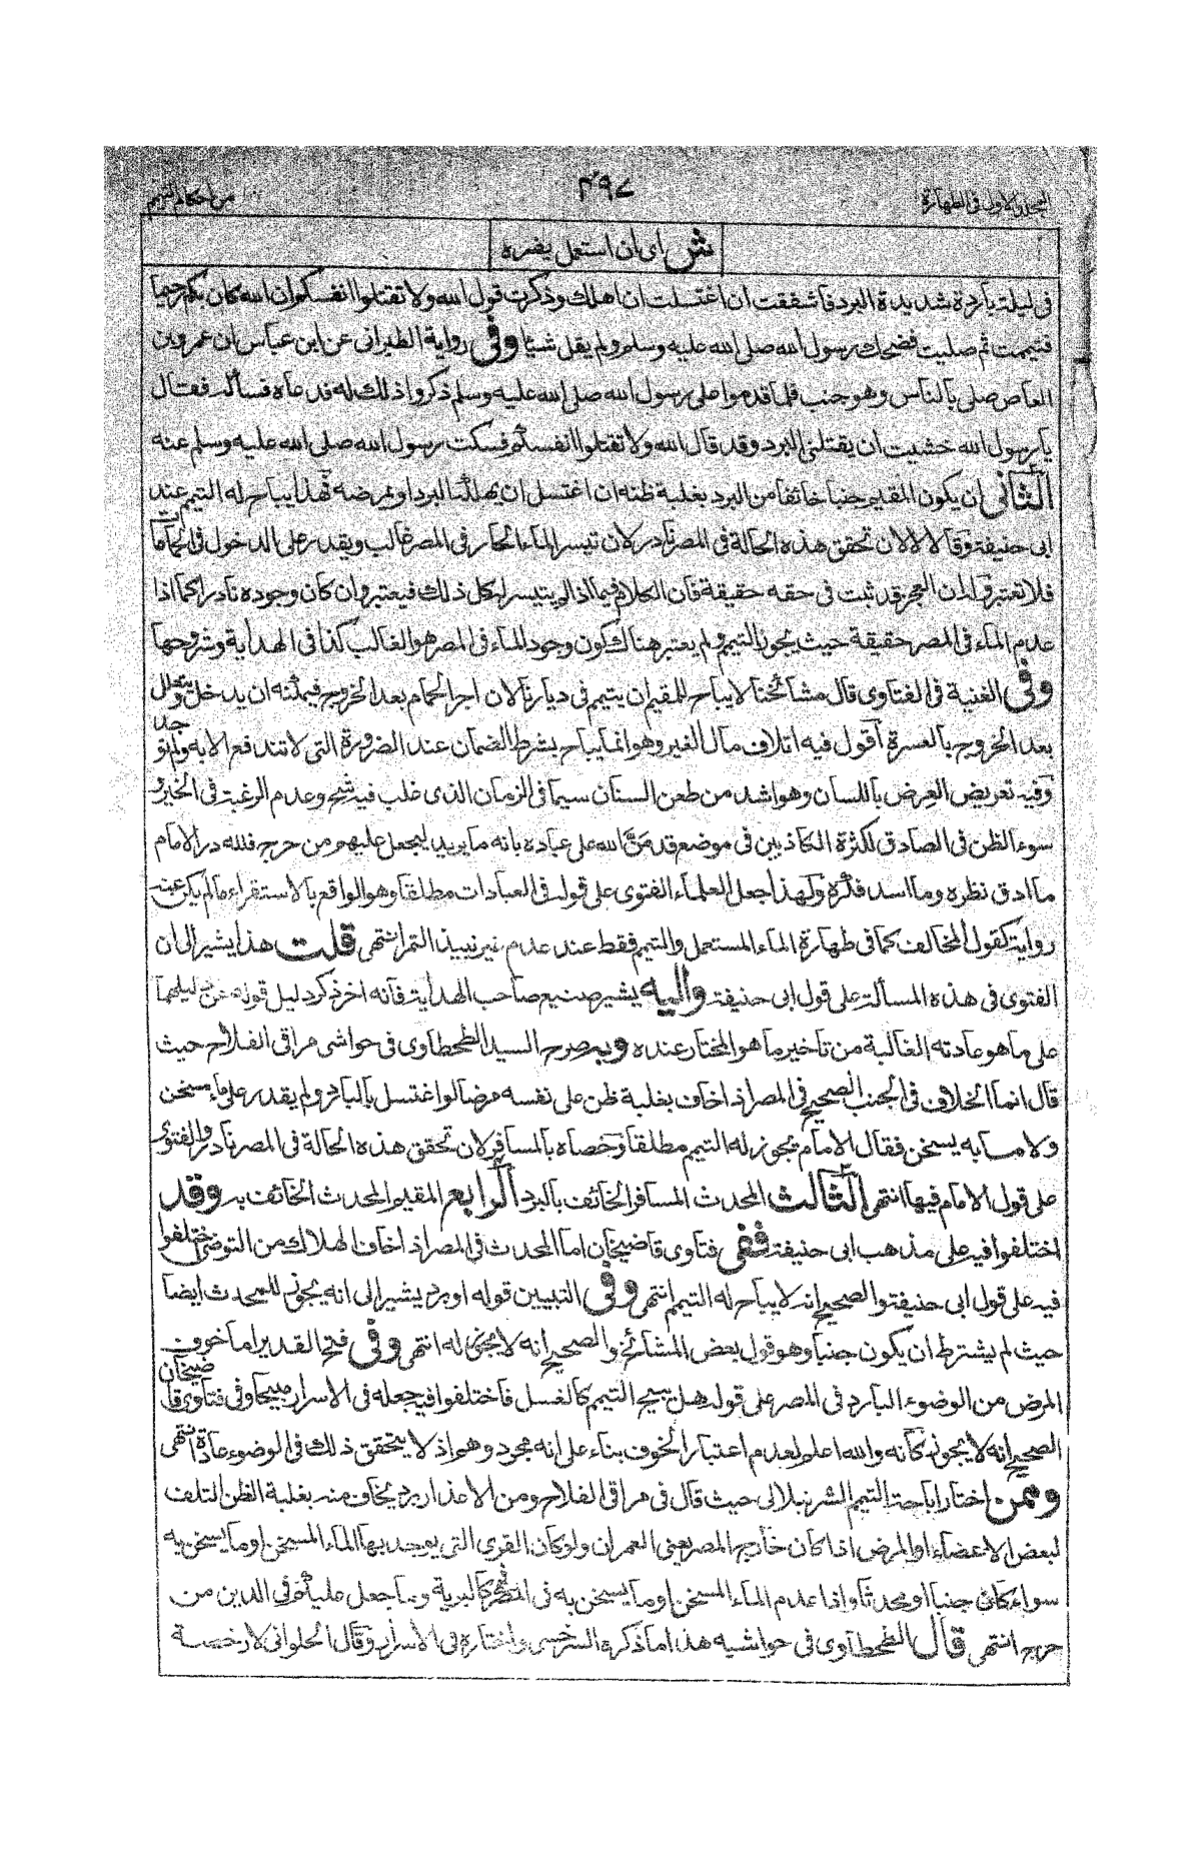 المجلد الاول فى الطهارة
٤٩٧
من احكام التيمم
ش اى ان استعمل يضره
فى ليلة باردة شديدة البرد فاشفقت ان اغتسلت ان اهلك وذكرت قول الله ولا تقتلوا انفسكم ان الله كان بكم رحيما
فتيممت ثم صليت فضحك رسول الله صلى الله عليه وسلم ولم يقل شيئا وفى رواية الطبرانى عن ابن عباس ان عمرو بن
العاص صلى بالناس وهو جنب فلما قدموا على رسول الله صلى الله عليه وسلم ذكروا ذلك له فدعاه فسأله فقال
يا رسول الله خشيت ان يقتلنى البرد وقد قال الله ولا تقتلوا انفسكم فسكت رسول الله صلى الله عليه وسلم عنه
الثانى ان يكون المقيم جنبا خائفا من البرد بغلبة ظنه ان اغتسل ان يهلكه البرد او يمرضه فهذا يباح له التيمم عند
ابى حنيفة وقالا لا لان تحقق هذه الحالة فى المصر نادر لان تيسر الماء الحار فى المصر غالب ويقدر على الدخول فى الحمامات
فلا تعتبر وله ان العجز قد ثبت فى حقه حقيقة فان الكلام فيما اذا لم يتيسر له كل ذلك فيعتبر وان كان وجوده نادرا كما اذا
عدم الماء فى المصر حقيقة حيث يجوز التيمم ولم يعتبر هناك كون وجود الماء فى المصر هو الغالب كذا فى الهداية وشروحها
وفى الغنية فى الفتاوى قال مشائخنا لا يباح للمقيم ان يتيمم فى ديارنا لان اجر الحمام بعد الخروج فيمكنه ان يدخل ويتعلل
بعد الخروج بالعسرة اقول فيه اتلاف مال الغير وهو انما يباح بشرط الضمان عند الضرورة التى لا تندفع الا به ولم توجد
وفيه تعريض العرض باللسان وهو اشد من طعن السنان سيما فى الزمان الذى غلب فيه شح وعدم الرغبة فى الخير و
سوء الظن فى الصادق لكثرة الكاذبين فى موضع قد من الله على عباده بانه ما يريد ليجعل عليهم من حرج فلله در الامام
ما ادق نظره وما اسد فكره ولهذا جعل العلماء الفتوى على قوله فى العبادات مطلقا وهو الواقع بالاستقراء ما لم يكن عنه
رواية كقول المخالف كما فى طهارة الماء المستعمل والتيمم فقط عند عدم غير نبيذ التمر انتهى قلت هذا يشير الى ان
الفتوى فى هذه المسألة على قول ابى حنيفة واليه يشير صنيع صاحب الهداية فانه اخر ذكر دليل قوله عن دليلهما
على ما هو عادته الغالبة من تاخير ما هو المختار عنده وبه صرح السيد الطحطاوى فى حواشى مراقى الفلاح حيث
قال انما الخلاف فى الجنب الصحيح فى المصر اذا خاف بغلبة ظن على نفسه مرضا لو اغتسل بالبارد ولم يقدر على ماء مسخن
ولا ما به يسخن فقال الامام يجوز له التيمم مطلقا وخصاه بالمسافر لان تحقق هذه الحالة فى المصر نادر والفتوى
على قول الامام فيها انتهى الثالث المحدث المسافر الخائف بالبرد الرابع المقيم المحدث الخائف به وقد
اختلفوا فيه على مذهب ابى حنيفة ففى فتاوى قاضيخان اما المحدث فى المصر اذا خاف الهلاك من التوضى اختلفوا
فيه على قول ابى حنيفة والصحيح انه لا يباح له التيمم انتهى وفى التبيين قوله او برد يشير الى انه يجوز للمحدث ايضا
حيث لم يشترط ان يكون جنبا وهو قول بعض المشائخ والصحيح انه لا يجوز له انتهى وفى فتح القدير اما خوف
المرض من الوضوء البارد فى المصر على قوله هل يبيح التيمم كالغسل فاختلفوا فيه جعله فى الاسرار مبيحا وفى فتاوى قاضيخان
الصحيح انه لا يجوز كانه والله اعلم لعدم اعتبار الخوف بناء على انه مجرد وهم اذ لا يتحقق ذلك فى الوضوء عادة انتهى
وممن اختار اباحة التيمم الشرنبلالى حيث قال فى مراقى الفلاح ومن الاعذار برد يخاف منه بغلبة الظن التلف
لبعض الاعضاء او المرض اذا كان خارج المصر يعنى العمران ولو كان القرى التى يوجد بها الماء المسخن او ما يسخن به
سواء كان جنبا او محدثا واذا عدم الماء المسخن او ما يسخن به فى المصر فهو كالبرية وما جعل عليكم فى الدين من
حرج انتهى قال الطحطاوى فى حواشيه هذا ما ذكره السرخسى واختاره فى الاسرار وقال الحلوانى لا رخصة